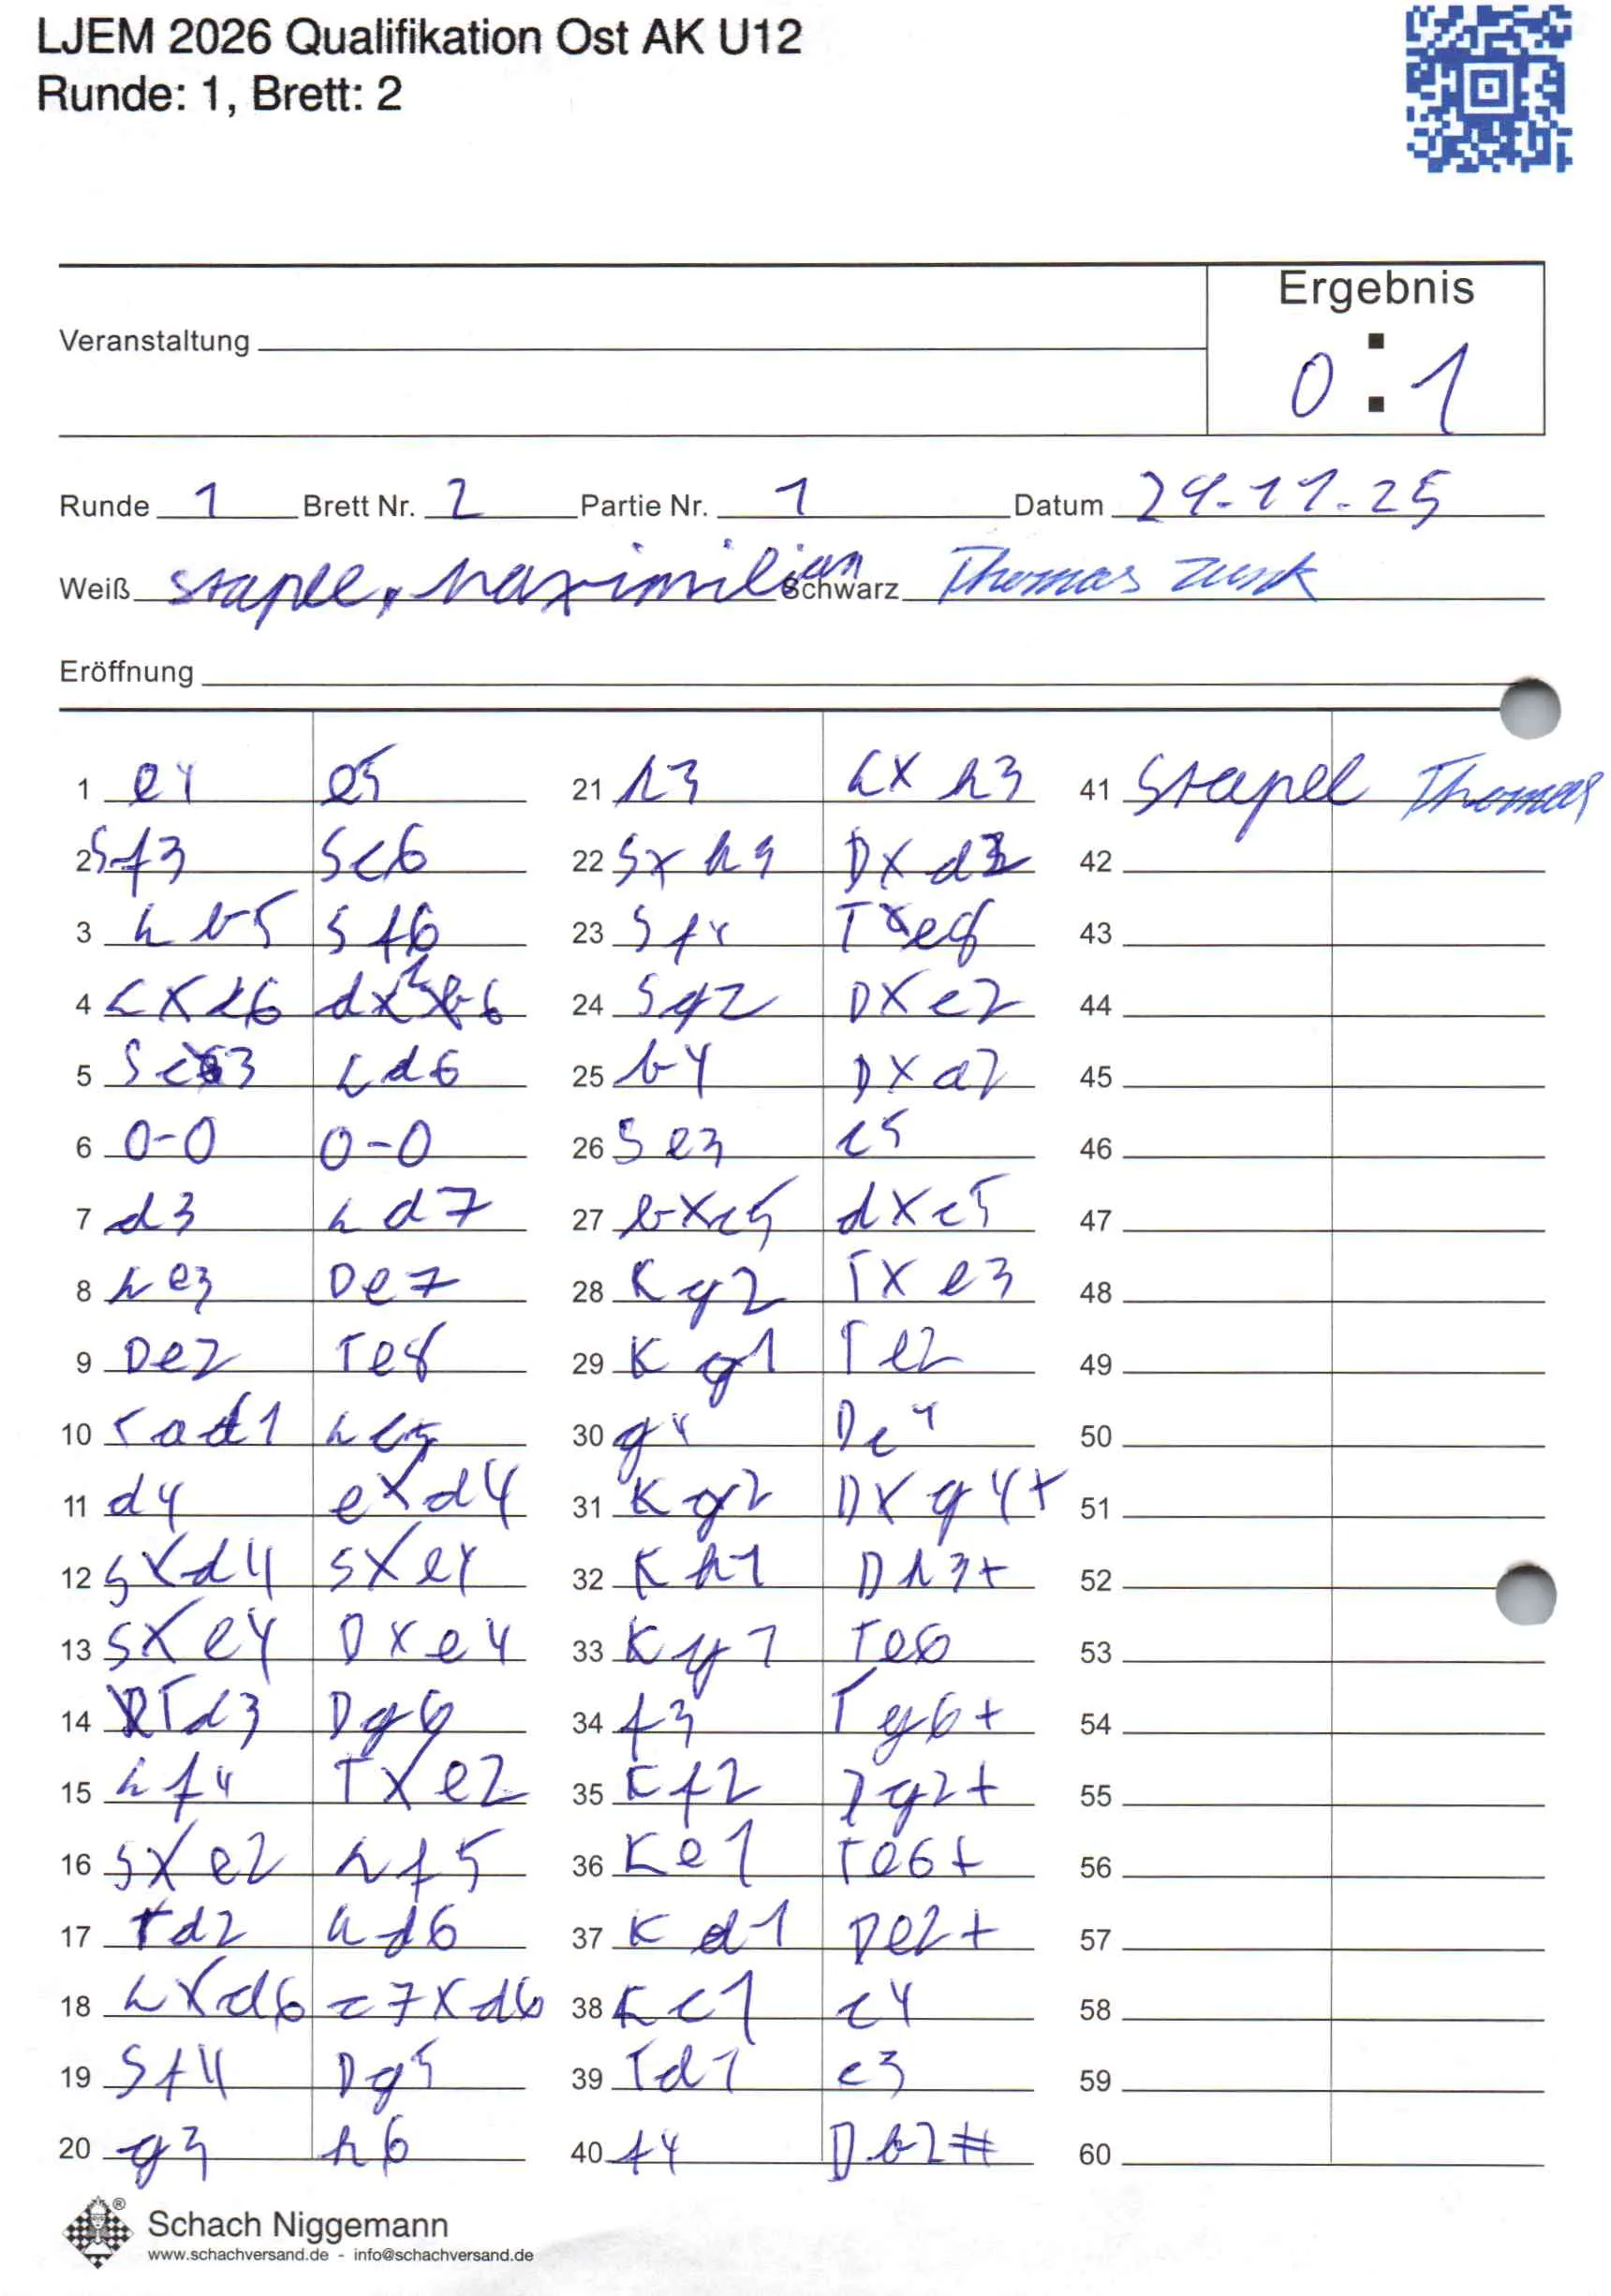 LJEM 2026 Qualifikation Ost AK U12
Runde: 1, Brett: 2
Ergebnis
0:1
Veranstaltung
Runde 1 Brett Nr. 2 Partie Nr. 1 Datum 29.11.25
Weiß Stapel, Maximilian Schwarz Thomas Zunk
Eröffnung
1 e4 e5
2 Sf3 Sc6
3 Lb5 Sf6
4 Lxc6 dxc6
5 Sc3 Ld6
6 0-0 0-0
7 d3 Ld7
8 Le3 De7
9 De2 Te8
10 Tad1 Lc5
11 d4 exd4
12 Sxd4 Sxe4
13 Sxe4 Dxe4
14 Td3 Dg6
15 Lf4 Txe2
16 Sxe2 Lf5
17 Td2 Ld6
18 Lxd6 c7xd6
19 Sf4 Dg5
20 g3 h6
21 h3 Lxh3
22 Sxh3 Dxd2
23 Sf4 Te8
24 Sg2 Dxc2
25 b4 Dxa2
26 Se3 c5
27 bxc5 dxc5
28 Kg2 Txe3
29 Kg1 Te2
30 g4 Dc4
31 Kg2 Dxg4+
32 Kh1 Dh3+
33 Kg1 Te6
34 f3 Tg6+
35 Kf2 Dg2+
36 Ke1 Te6+
37 Kd1 De2+
38 Kc1 c4
39 Td1 c3
40 f4 Db2#
41 Stapel Thomas
42
43
44
45
46
47
48
49
50
51
52
53
54
55
56
57
58
59
60
Schach Niggemann
www.schachversand.de - info@schachversand.de